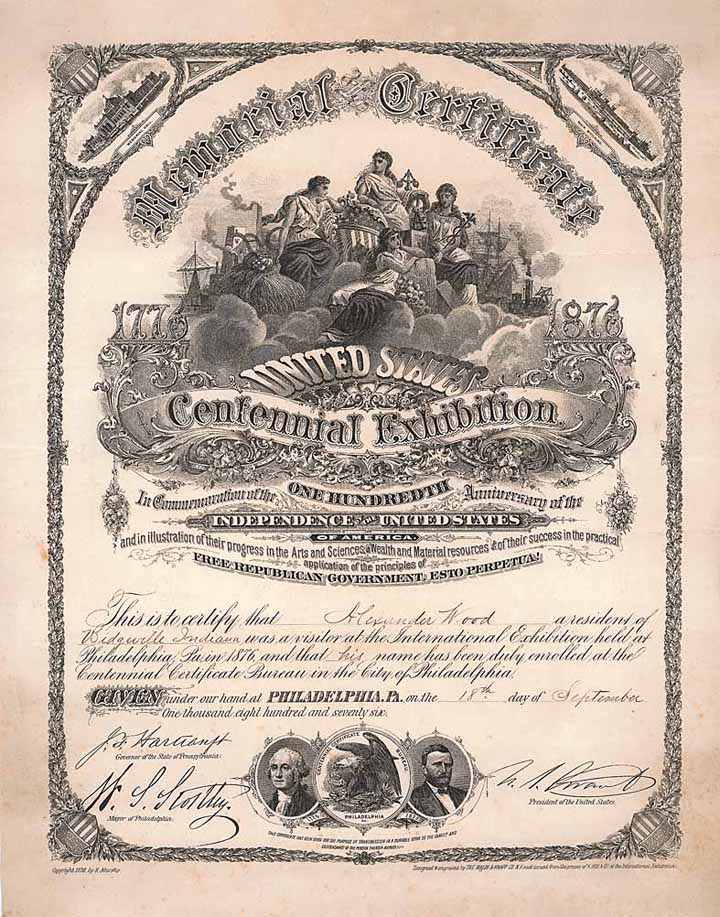 Memorial Certificate
1776
1876
UNITED STATES
Centennial Exhibition
In Commemoration of the ONE HUNDREDTH Anniversary of the
INDEPENDENCE OF THE UNITED STATES
OF AMERICA
and in illustration of their progress in the Arts and Sciences, of Wealth and Material resources & of their success in the practical
application of the principles of
FREE REPUBLICAN GOVERNMENT. ESTO PERPETUA!
This is to certify that Alexander Wood a resident of
Ridgville Indiana was a visitor at the International Exhibition held at
Philadelphia, Pa. in 1876 and that his name has been duly enrolled at the
Centennial Certificate Bureau in the City of Philadelphia.
GIVEN under our hand at PHILADELPHIA. PA. on the 18th day of September
One thousand eight hundred and seventy six.
J. F. Hartranft
Governor of the State of Pennsylvania.
W. S. Stokley.
Mayor of Philadelphia.
CENTENNIAL CERTIFICATE BUREAU
PHILADELPHIA
PA.
1876
U. S. Grant
President of the United States.
THIS CERTIFICATE HAS BEEN GIVEN FOR THE PURPOSE OF TRANSMISSION IN A DURABLE FORM TO THE FAMILY AND
DESCENDANTS OF THE PERSON THEREIN NAMED
Copyright, 1876, by R. Murphy.
Designed & engraved by THE MAJOR & KNAPP
at the International Exhibition